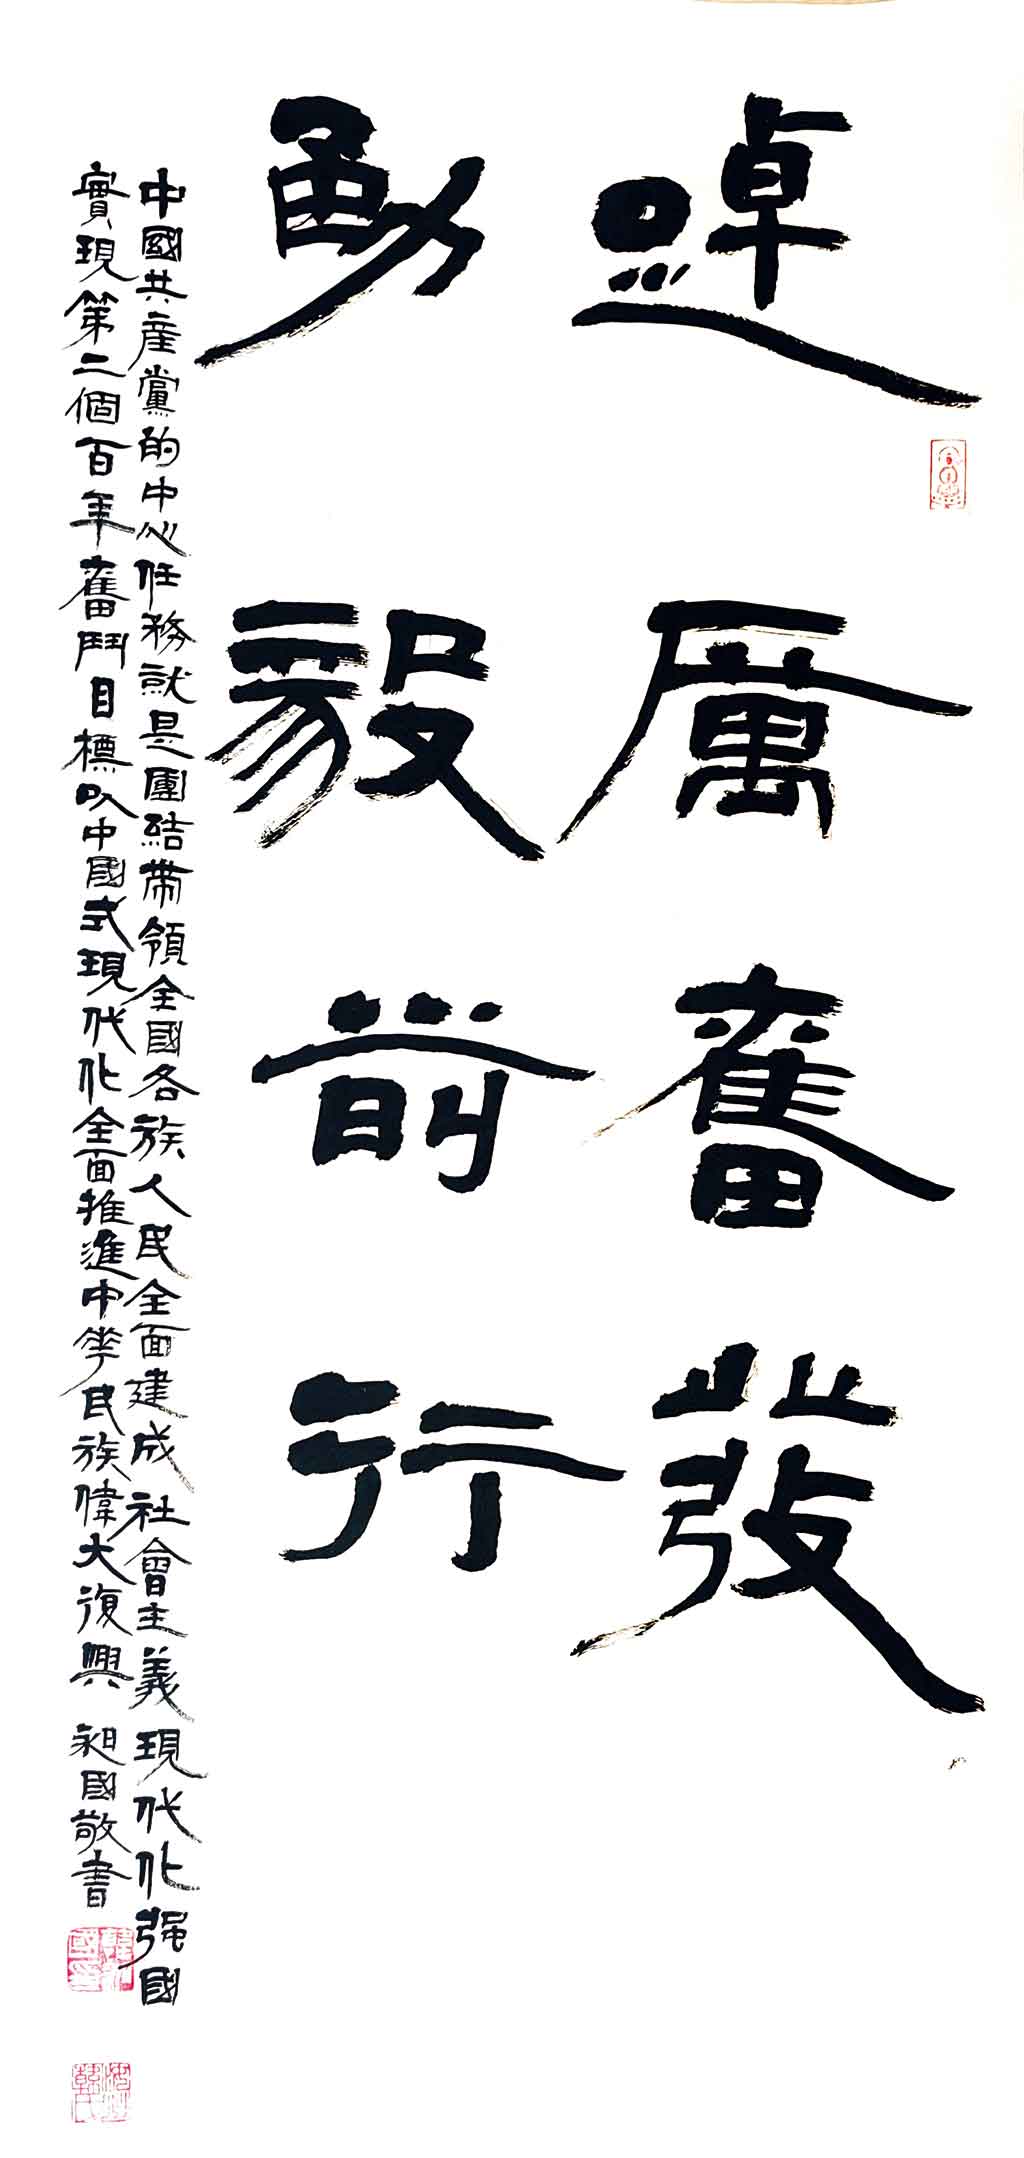 踔厲奮發
勇毅前行
中國共産黨的中心任務就是團結帶領全國各族人民全面建成社會主義現代化强國
實現第二個百年奮鬥目標以中國式現代化全面推進中華民族偉大復興 昶國敬書